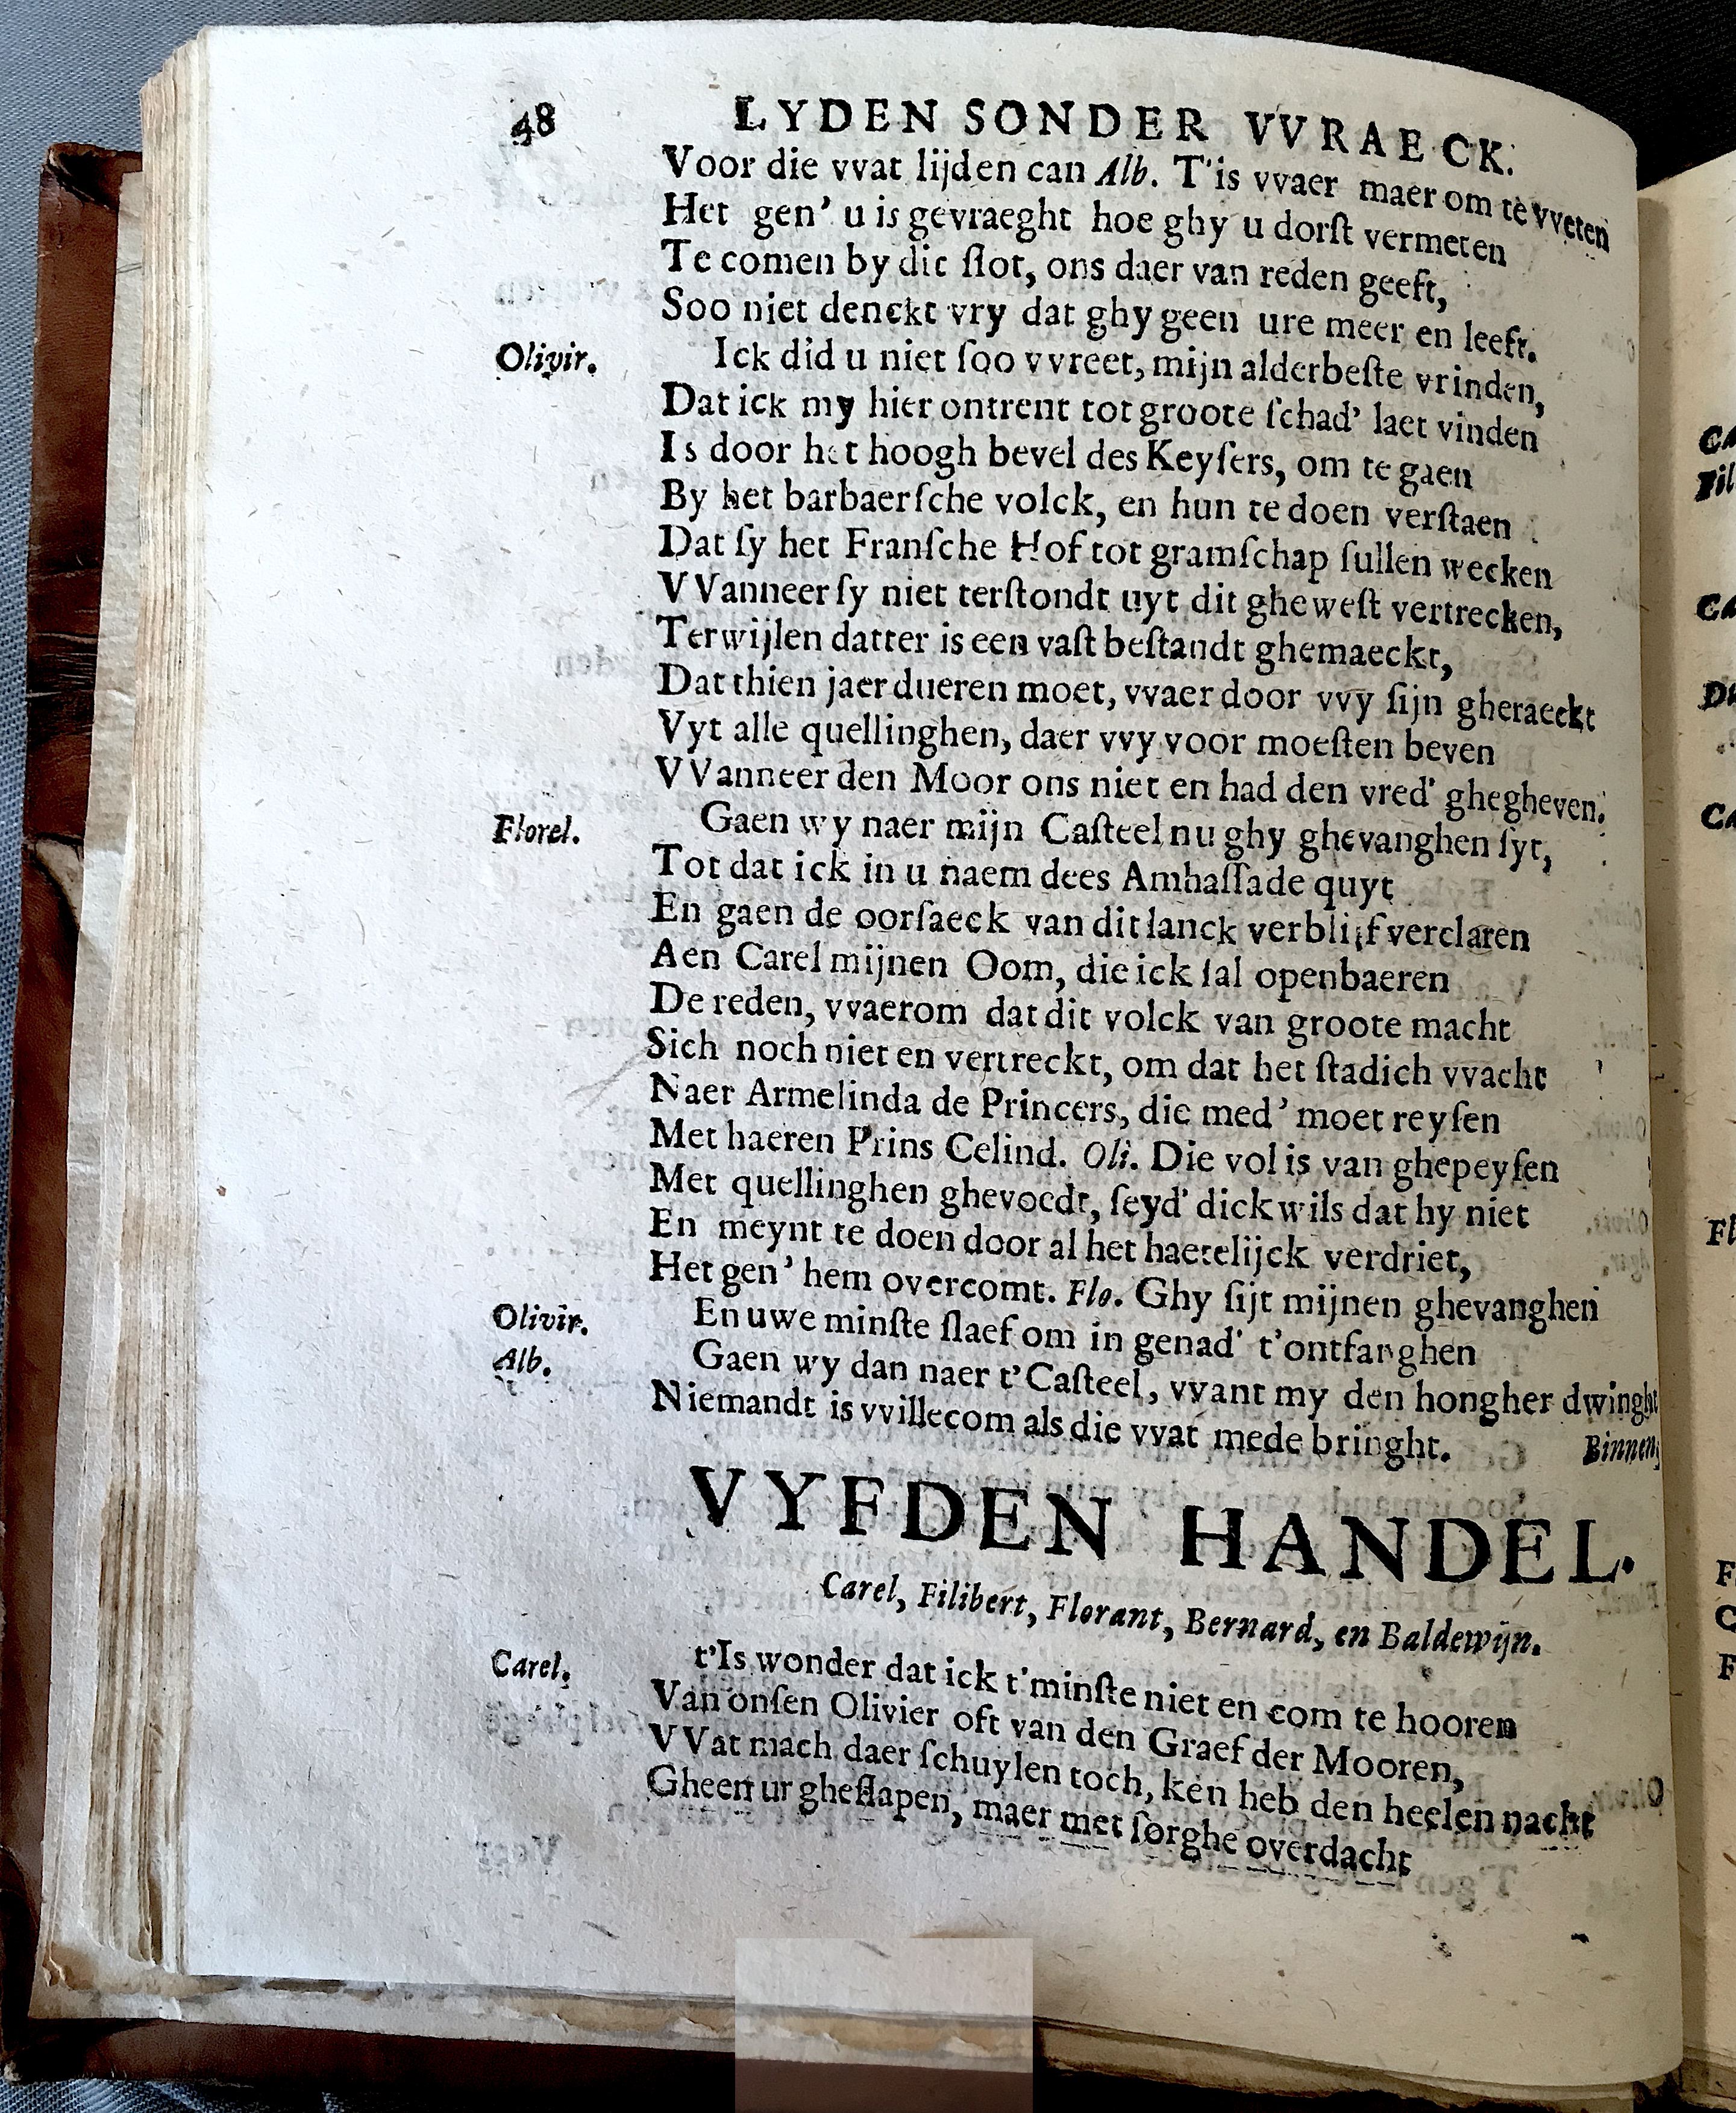 48 LYDEN SONDER VVRAECK.
Voor die vvat lijden can Alb. T'is vvaer maer om te vveten
Het gen' u is gevraeght hoe ghy u dorſt vermeten
Te comen by dit ſlot, ons daer van reden geeft,
Soo niet denckt vry dat ghy geen ure meer en leeft.
Olivir. Ick did u niet ſoo vvreet, mijn alderbeſte vrinden,
Dat ick my hier ontrent tot groote ſchad' laet vinden
Is door het hoogh bevel des Keyſers, om te gaen
By het barbaerſche volck, en hun te doen verſtaen
Dat ſy het Franſche Hof tot gramſchap ſullen wecken
VVanneer ſy niet terſtondt uyt dit gheweſt vertrecken,
Terwijlen datter is een vaſt beſtandt ghemaeckt,
Dat thien jaer dueren moet, vvaer door vvy ſijn gheraeckt
Vyt alle quellinghen, daer vvy voor moeſten beven
VVanneer den Moor ons niet en had den vred' ghegheven.
Florel. Gaen wy naer mijn Caſteel nu ghy ghevanghen ſyt,
Tot dat ick in u naem dees Amhaſſade quyt
En gaen de oorſaeck van dit lanck verblijf verclaren
Aen Carel mijnen Oom, die ick ſal openbaeren
De reden, vvaerom dat dit volck van groote macht
Sich noch niet en vertreckt, om dat het ſtadich vvacht
Naer Armelinda de Princers, die med' moet reyſen
Met haeren Prins Celind. Oli. Die vol is van ghepeyſen
Met quellinghen ghevoedt, ſeyd' dickwils dat hy niet
En meynt te doen door al het haetelijck verdriet,
Het gen' hem overcomt. Flo. Ghy ſijt mijnen ghevanghen
Olivir. En uwe minſte ſlaef om in genad' t'ontfanghen
Alb. Gaen wy dan naer t'Caſteel, vvant my den hongher dwinght
Niemandt is vvillecom als die vvat mede bringht. Binnen
VYFDEN HANDEL.
Carel, Filibert, Florant, Bernard, en Baldewijn.
Carel, t'Is wonder dat ick t'minſte niet en com te hooren
Van onſen Olivier oft van den Graef der Mooren,
VVat mach daer ſchuylen toch, ken heb den heelen nacht
Gheen ur gheſlapen, maer met ſorghe overdacht